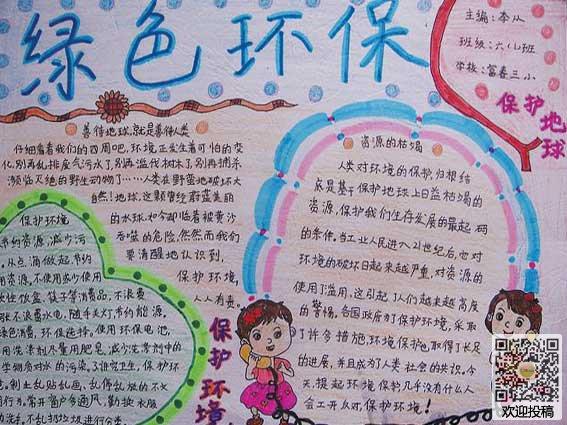 绿色环保
主编:李从
班级:六(1)班
学校:富春三小
保护地球
善待地球,就是善待人类
仔细看看我们的四周吧,环境正发生着可怕的变
化,别再乱排废气污水了,别再滥伐树木了,别再捕杀
濒临灭绝的野生动物了……人类在野蛮地破坏大
自然!地球,这颗曾经蔚蓝美丽
的水球,如今却临着被黄沙
吞噬的危险,然然而我们
要清醒地认识到,
保护环境,
人人有责。
资源的枯竭
人类对环境的保护,归根结
底是基于保护地球上日益枯竭的
资源,保护我们生存发展的最起码
的条件。当工业人民进入21世纪后,也对
环境的破坏日起来越严重,对资源的
使用了滥用,这引起了人们越来越高度
的警惕,各国政府为了保护环境,采取
了许多措施,环境保护也取得了长足
的进展,并且成为了人类社会的共识。今
天,提起环境保护几乎没有什么人
会工开反对,保护环境!
保护环境
节约资源,减少污
,从点滴做起,节约
用资源,不使用或少使用
次性饭盒、筷子等消费品,不浪费
张不浪费水电,随手关灯,节约能源,
绿色消费,环保选择。使用环保电池,
用洗涤剂尽量用肥皂,减少洗涤剂中的
学物质对水的污染。了讲究卫生,保护环
制止乱贴乱画,乱停乱放的不文
明行为。常开窗户多通风,勤换衣服
勤洗手,不乱扔垃圾,进行分类。
保护环境
欢迎投稿